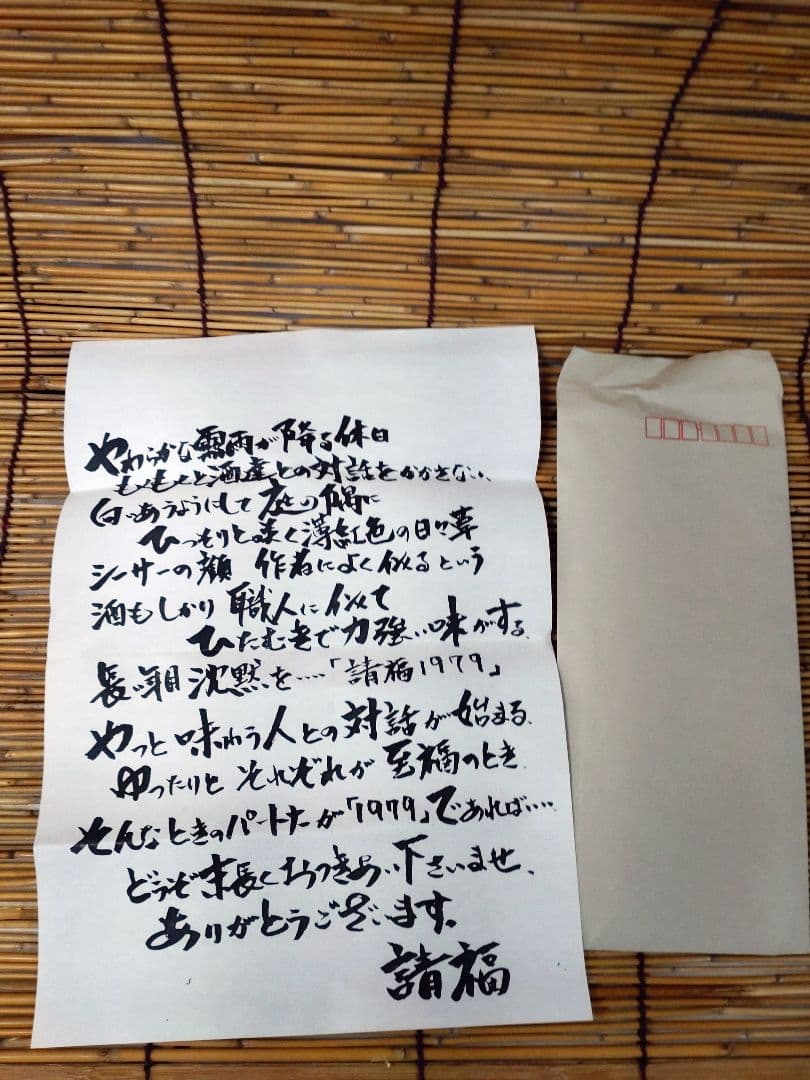 やわらかな霧雨が降る休日
もくもくと酒座との対話をかかさない、
向いあうようにして庭の隅に
ひっそりと咲く薄紅色の日々草
シーサーの顔 作者によく似るという
酒もしかり 職人に似て
ひたむきで力強い味がする、
長い年月沈黙を…「請福1979」
やっと味わう人との対話が始まる、
ゆったりと それぞれが 至福のとき
そんなときのパートナーが「1979」であれば…
どうぞ末長くおつきあい下さいませ、
ありがとうございます。
請福